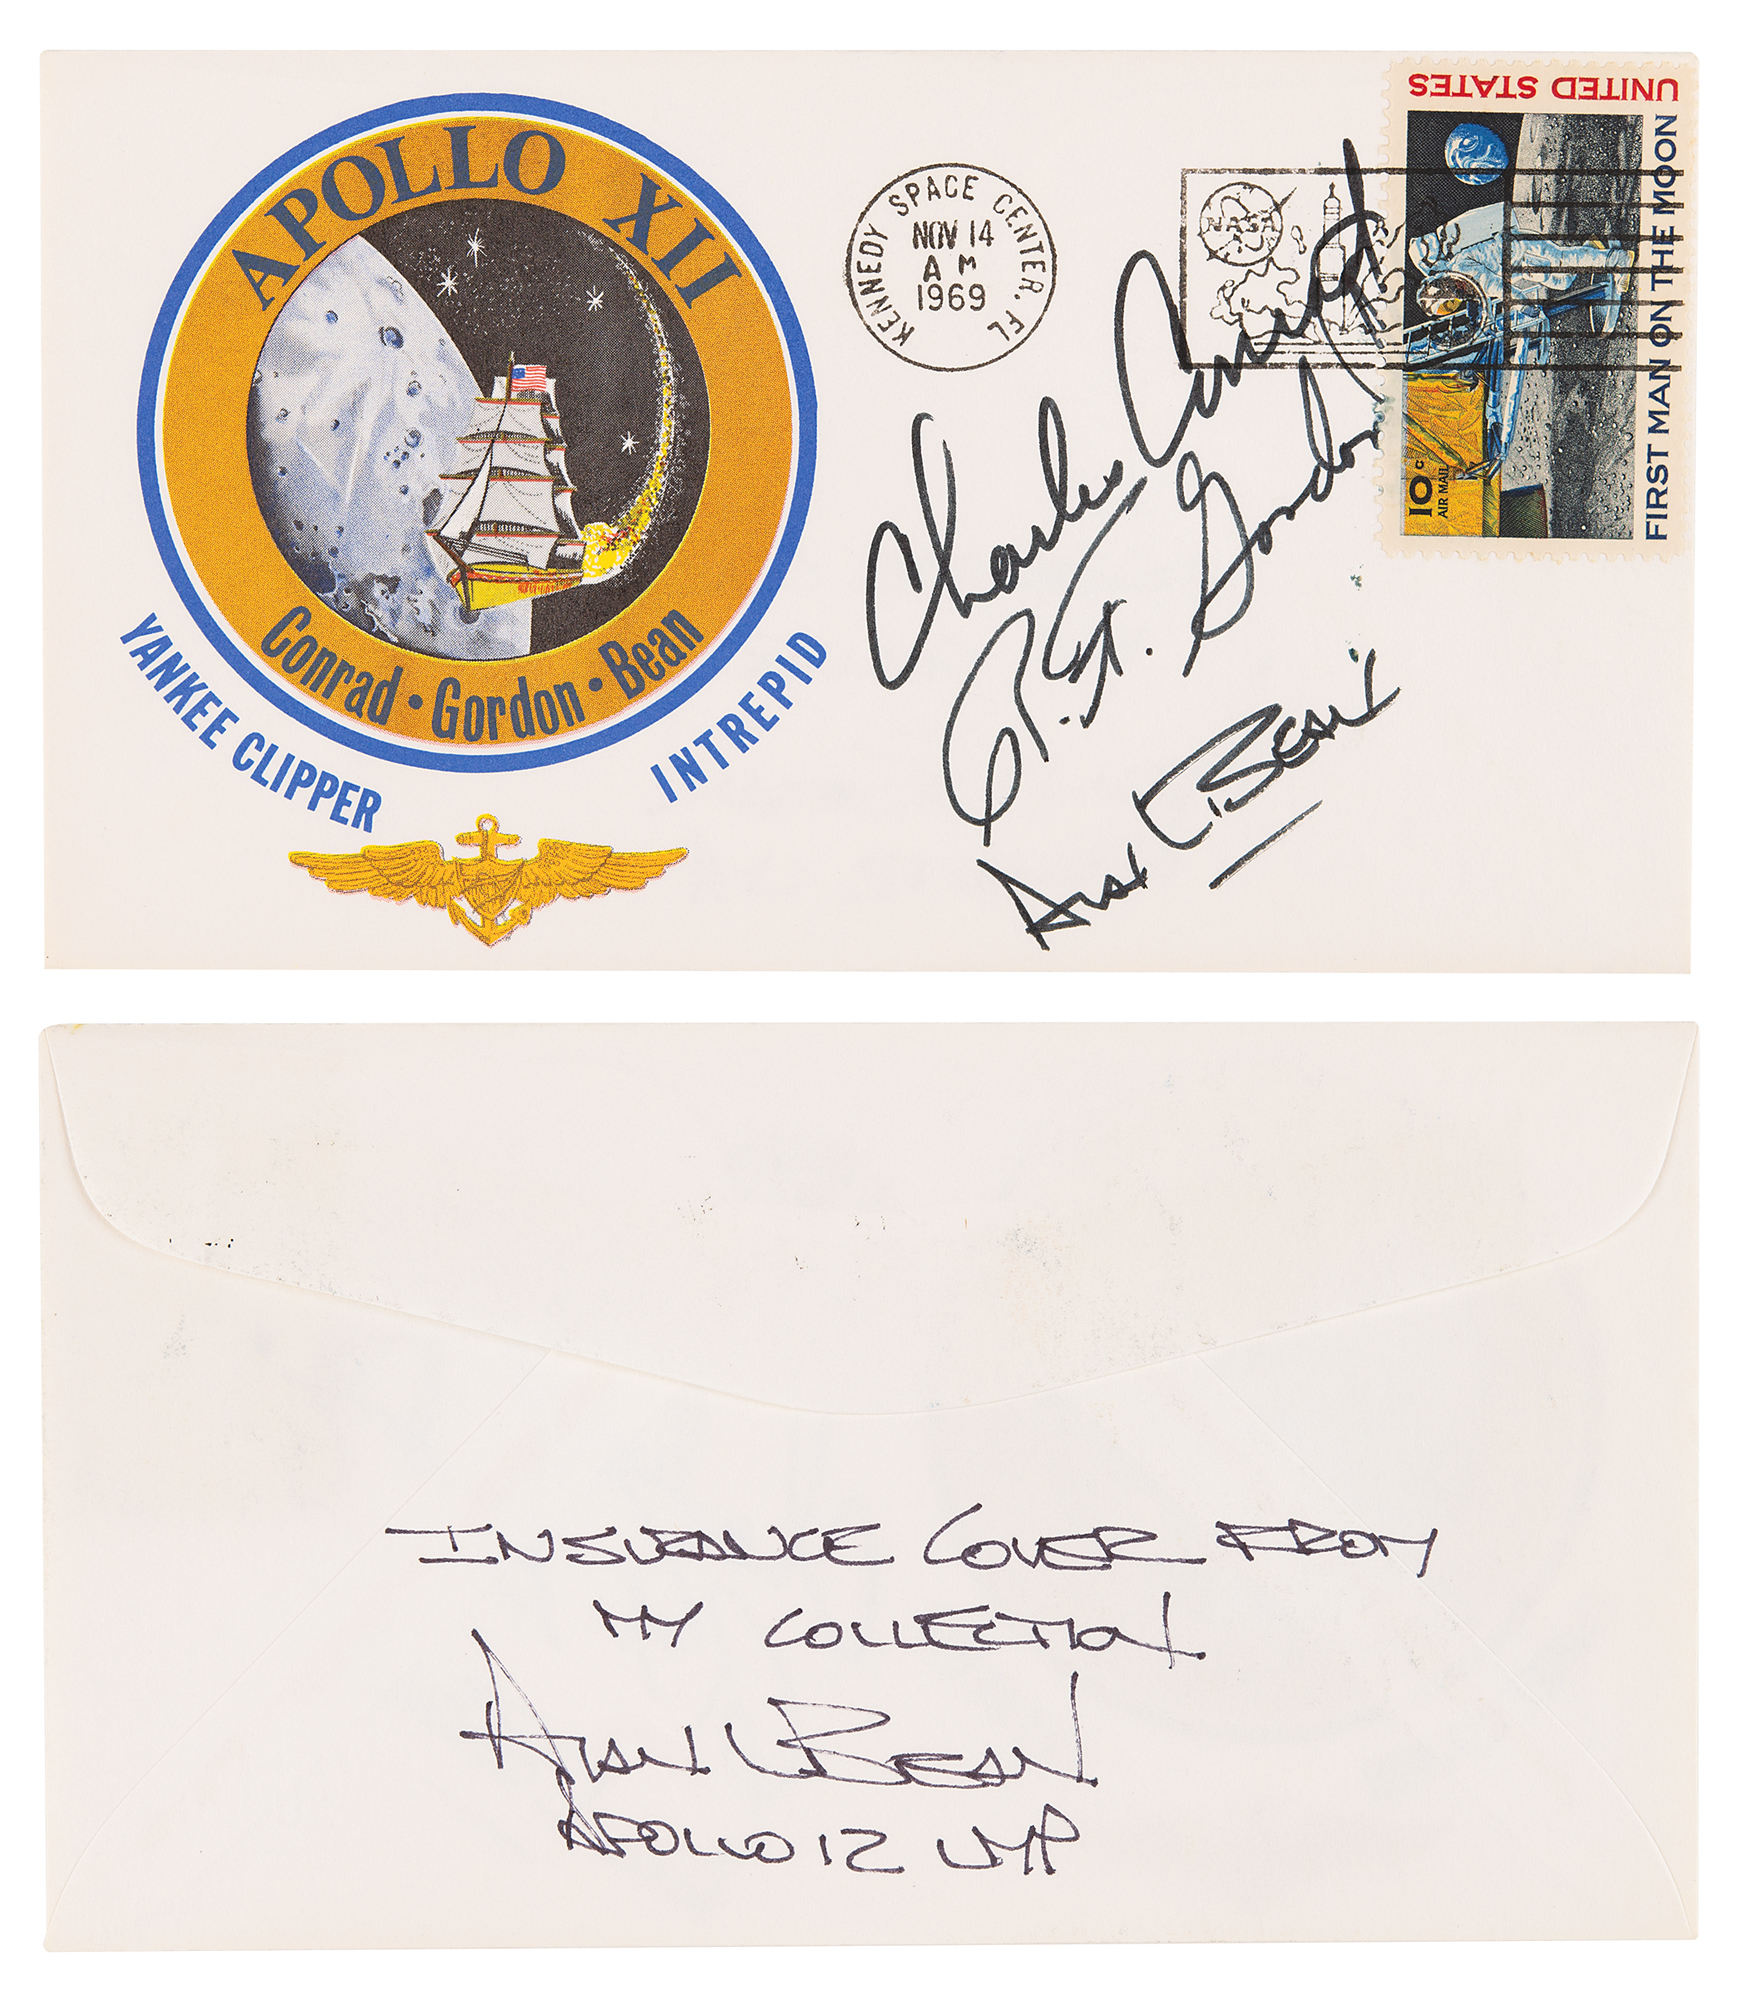 APOLLO XII
Conrad • Gordon • Bean
YANKEE CLIPPER
INTREPID
KENNEDY SPACE CENTER, FL
NOV 14
A M
1969
NASA
UNITED STATES
FIRST MAN ON THE MOON
10c
AIR MAIL
Charles Conrad Jr
R. F. Gordon Jr
Alan Bean
INSURANCE COVER FROM
MY COLLECTION
Alan L Bean
APOLLO 12 LMP